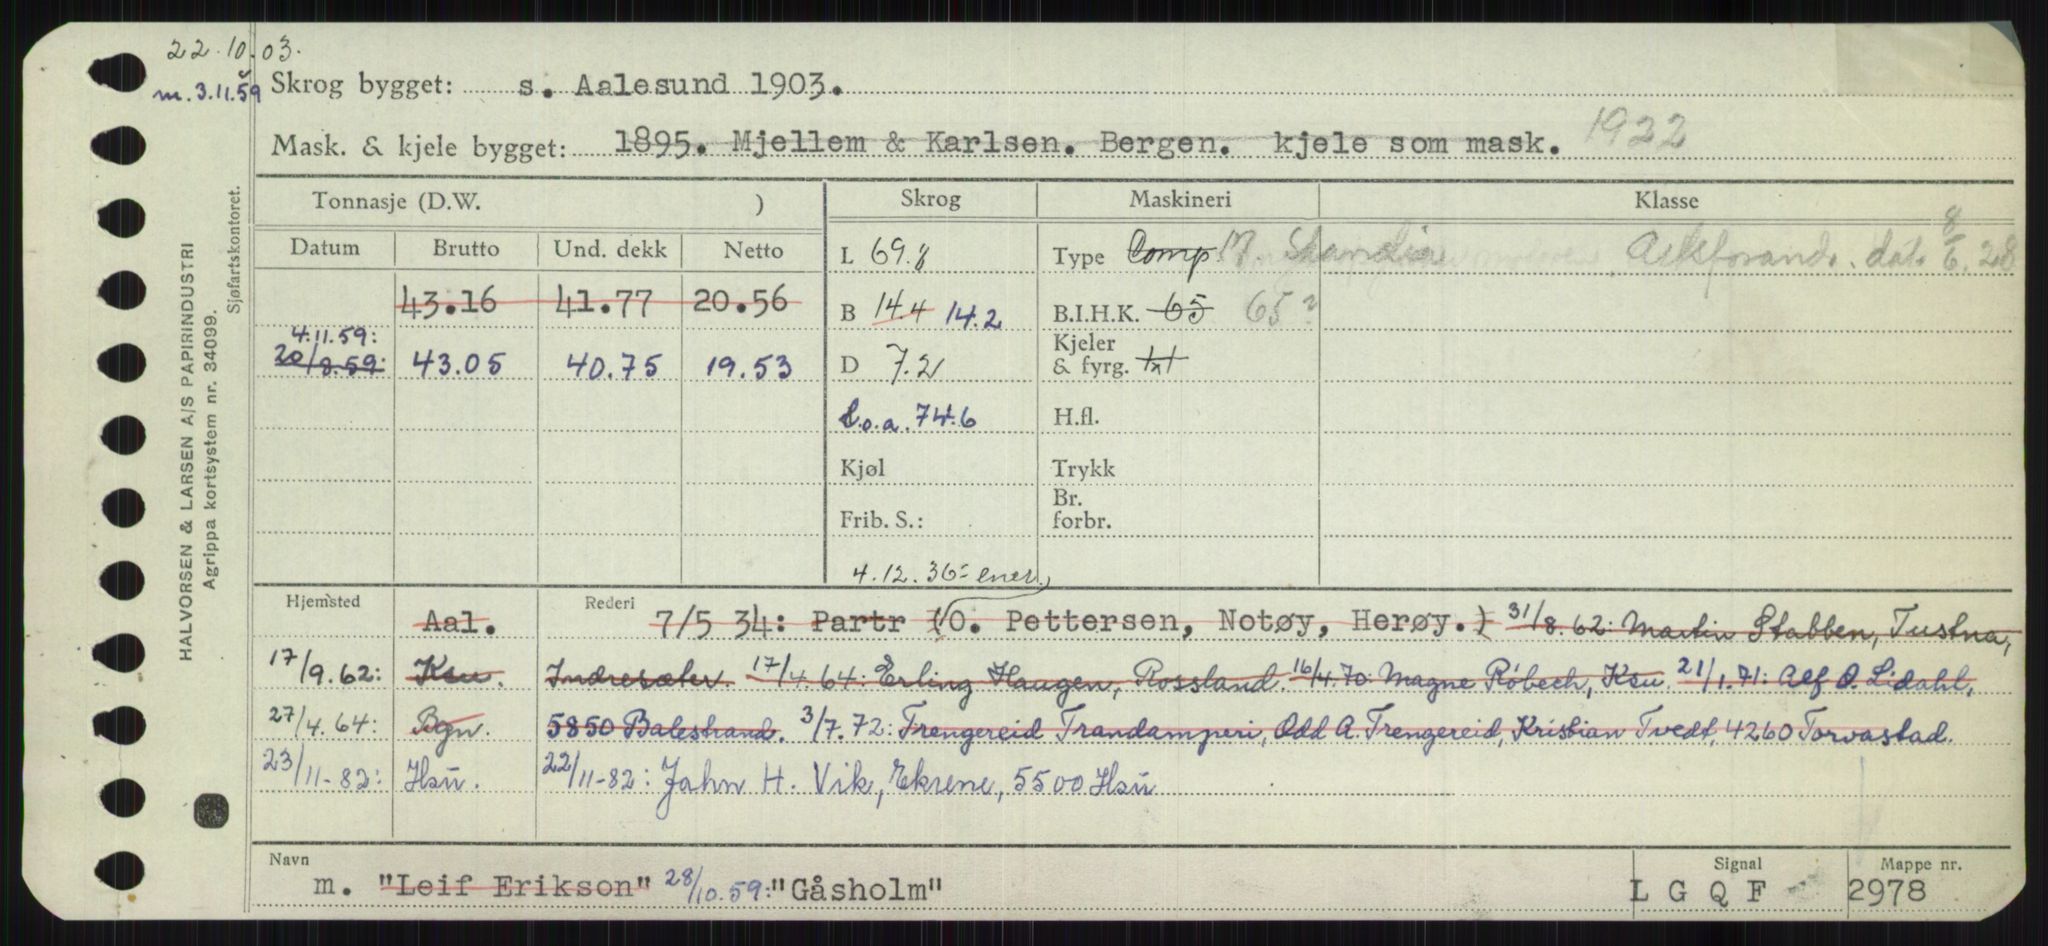 22.10.03.
m. 3.11.59
Skrog bygget: s. Aalesund 1903.
Mask. & kjele bygget: 1895. Mjellem & Karlsen. Bergen. kjele som mask. 1922
HALVORSEN & LARSEN A/S PAPIRINDUSTRI
Agrippa kortsystem nr. 34099.
Sjøfartskontoret.
Tonnasje (D.W. ) Skrog Maskineri Klasse
Datum Brutto Und. dekk Netto
L 69.8 Type Comp M. Skandia dat. 8/6.28
43.16 41.77 20.56
B 14.4 14.2 B.I.H.K. 65 65?
4.11.59:
20/8.59: 43.05 40.75 19.53
D 7.2 Kjeler & fyrg. 1x1
L.o.a. 74.6 H.fl.
Kjøl Trykk
Frib. S.: Br. forbr.
4.12.36: ener.
Hjemsted Aal. Rederi 7/5 34: Partr (O. Pettersen, Notøy, Herøy.) 31/8.62: Martin Stabben, Tustna,
17/9.62: Ksu. Indresæter. 17/4.64: Erling Haugen, Rossland. 16/4.70: Magne Róbech, Ksu. 21/1.71: Alf O. Lidahl,
27/4.64: Bgn. 5850 Balestrand. 3/7.72: Trengereid Trandamperi, Odd A. Trengereid, Kristian Tvedt, 4260 Torvastad.
23/11-82: Hsū. 22/11-82: Jahn H. Vik, Ekrene, 5500 Hsū
Navn Signal Mappe nr.
m. "Leif Erikson" 28/10.59: "Gåsholm" L G Q F 2978